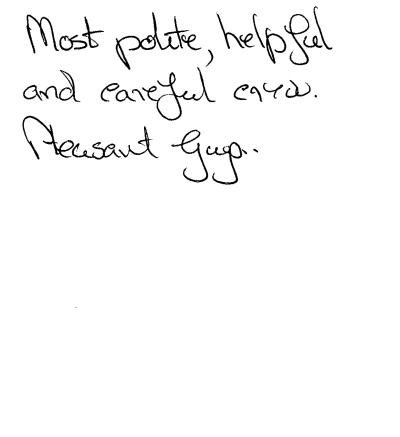 Most polite, helpful
and careful crew.
Pleasant Guys..